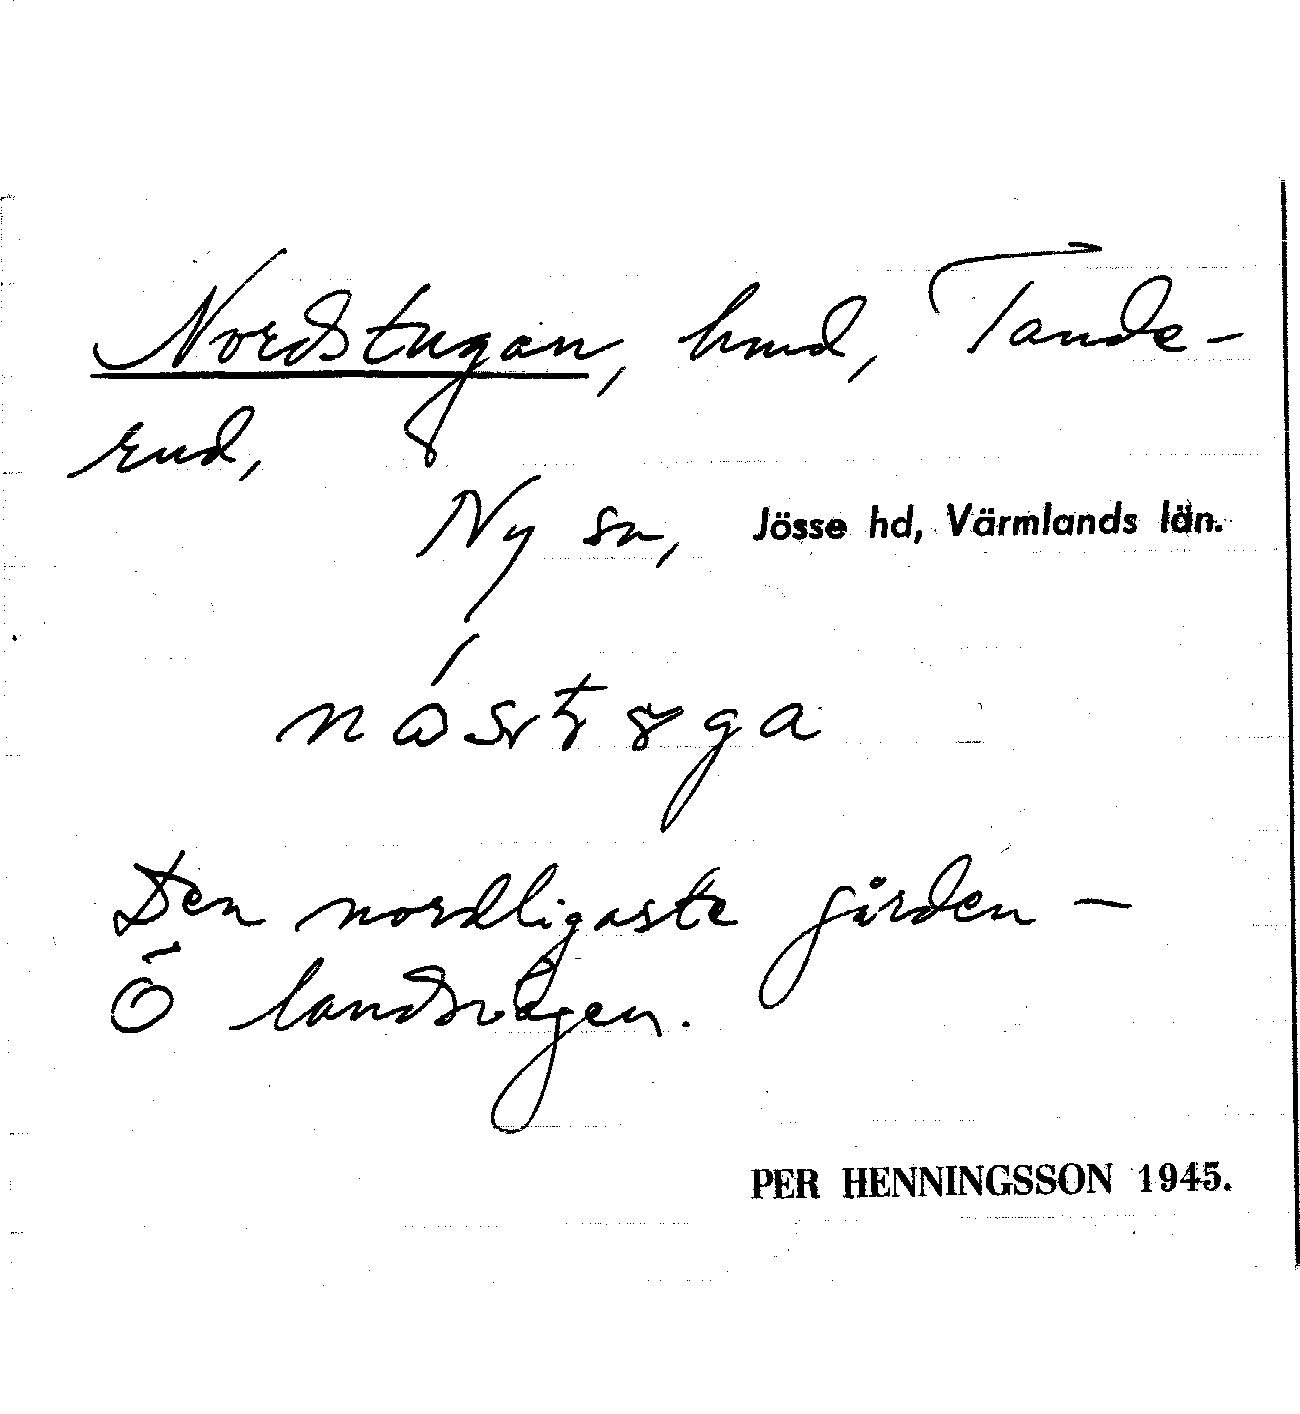 Nordstugan, hmd, Tande-
rud,
Ny sn, Jösse hd, Värmlands län.
Den nordligaste gården –
Ö landsvägen.
PER HENNINGSSON 1945.